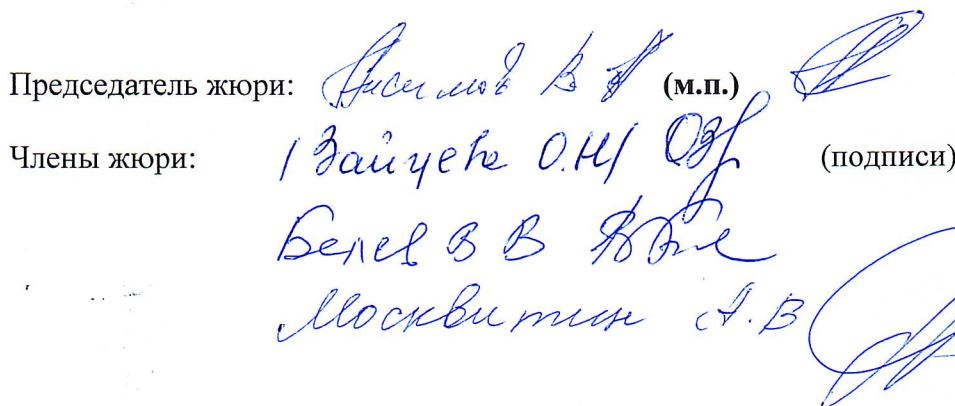 Председатель жюри: Анисимов В (м.п.)
Члены жюри: /Зайцева О.Н/ (подписи)
Белев В В
Москвитин А.В